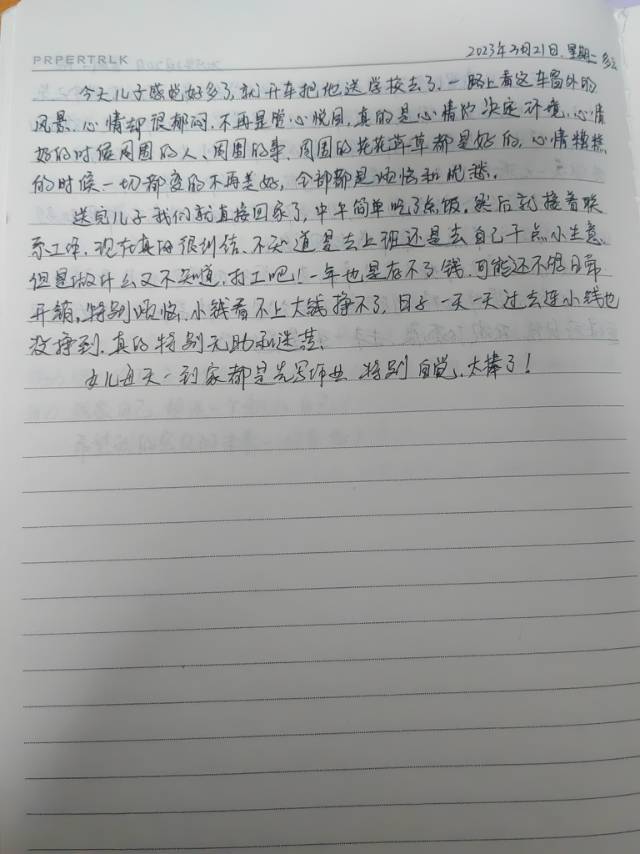 PRPERTRLK
2023年3月21日.星期二 多云
今天儿子感觉好多了,就开车把他送学校去了.一路上看这车窗外的
风景.心情却很郁闷.不再显觉心悦目,真的是心情的决定环境.心情
好的时候周围的人、周围的事、周围的花花草草都是好的,心情糟糕
的时候一切都变的不再美好,全部都是烦恼和忧愁.
送完儿子我们就直接回家了,中午简单吃了点饭.然后就接着联
系工作,现在真的很纠结、不知道是去上班还是去自己干点小生意.
但是做什么又不知道,打工吧!一年也是存不了钱,可能还不够日常
开销,特别烦恼.小钱看不上大钱挣不了,日子一天一天过去连小钱也
没挣到.真的特别无助和迷茫.
女儿每天一到家都是先写作业 特别自觉.太棒了!